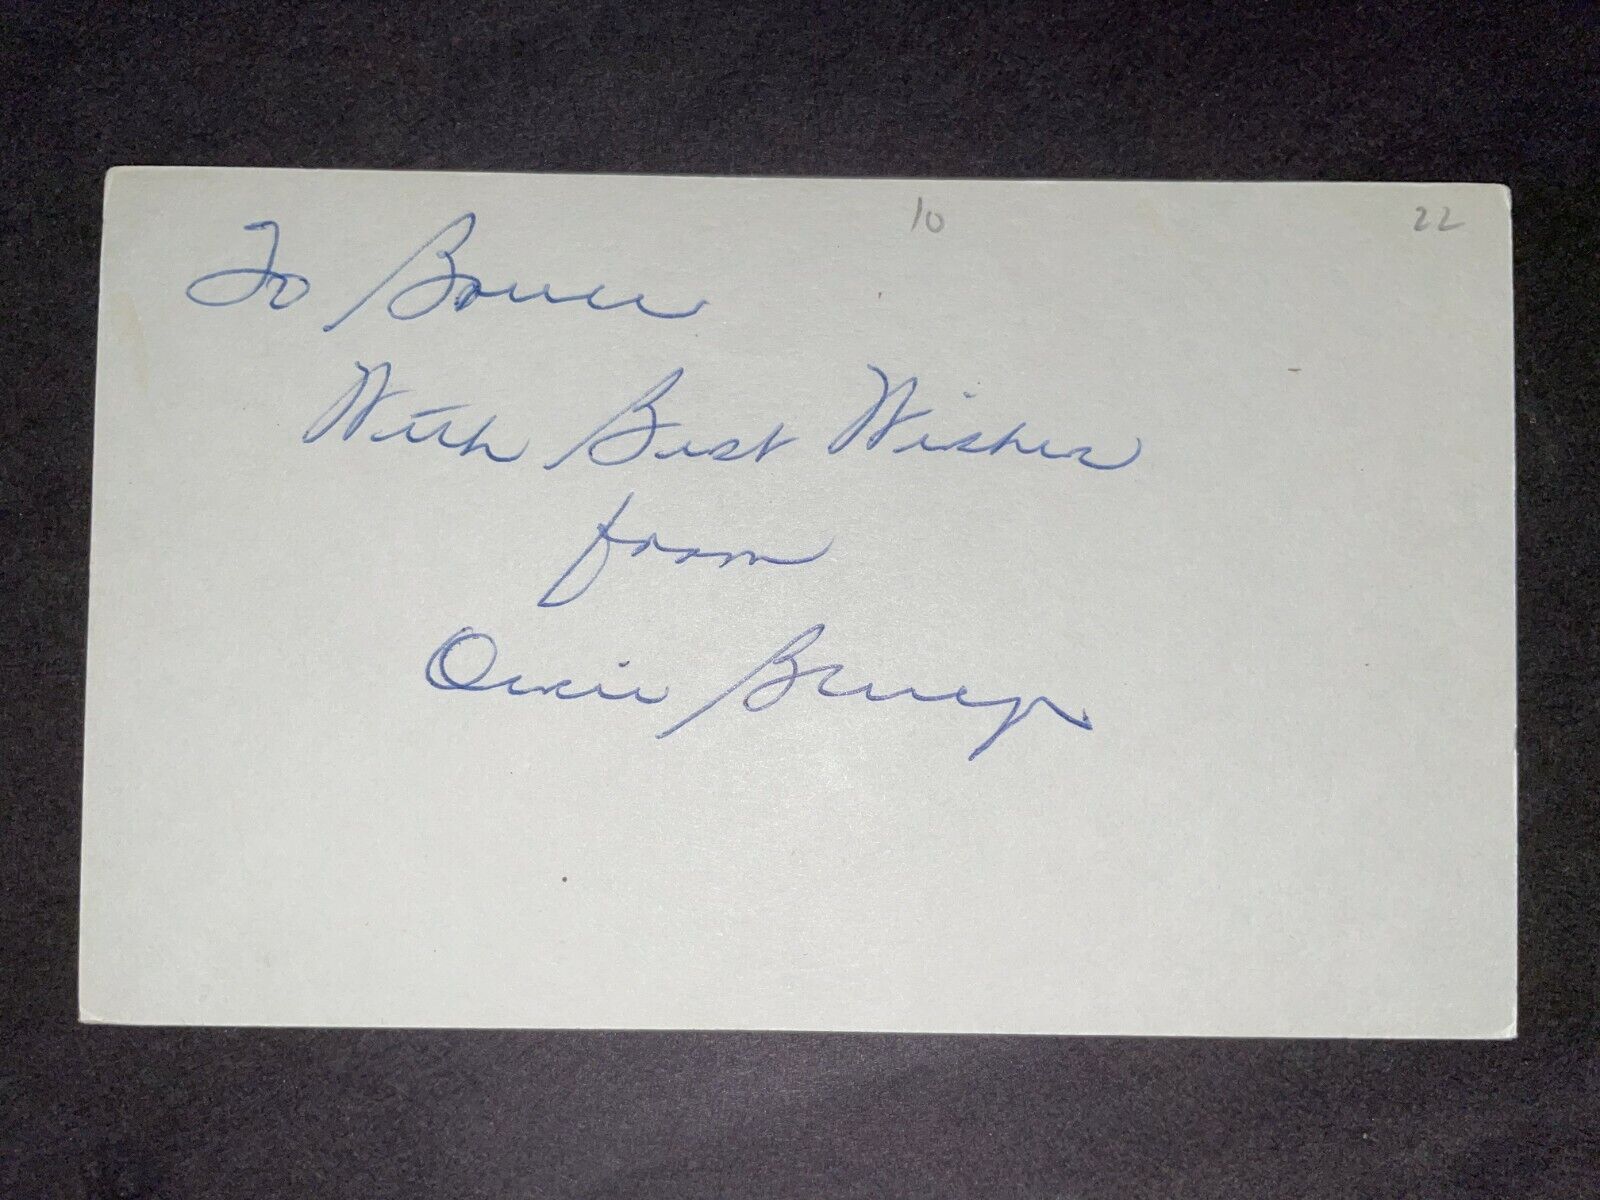 10 22
To Bruce
With Best Wishes
from
Ossie Bluege